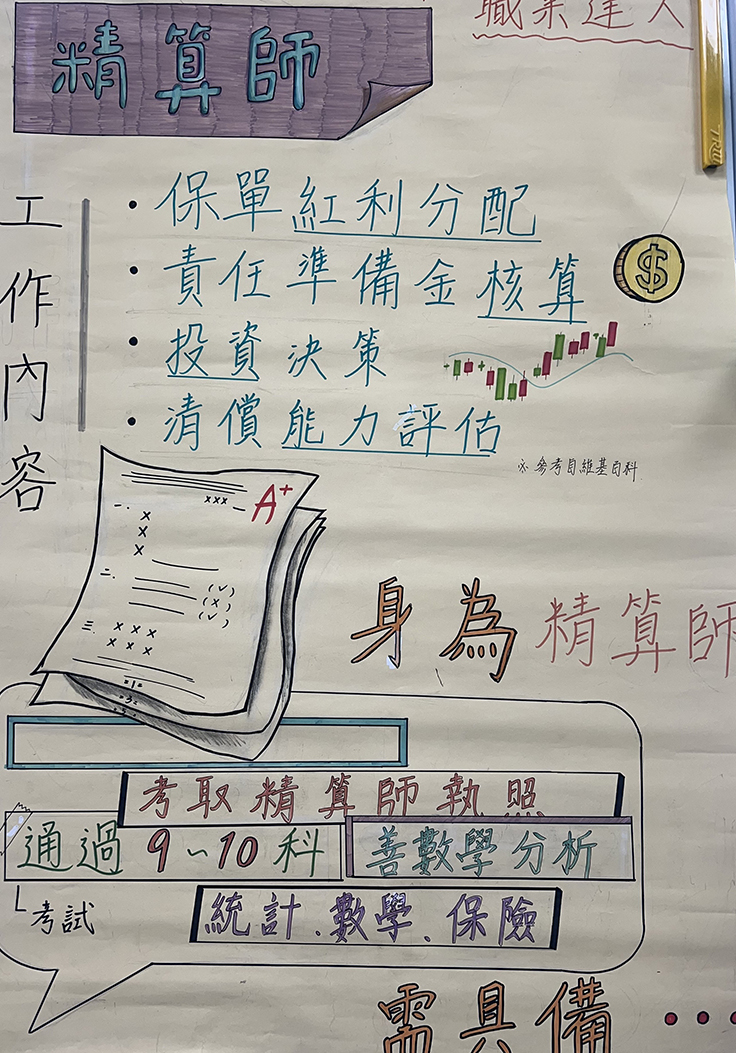 職業達人
精算師
工作內容
• 保單紅利分配
• 責任準備金核算
• 投資決策
• 清償能力評估
※ 參考自維基百科
A+
xxx
一.
x
x
x
二.
(✓)
(x)
(✓)
三.
x x x
x x x
身為精算師
考取精算師執照
通過9~10科
善數學分析
考試
統計、數學、保險
需具備•••